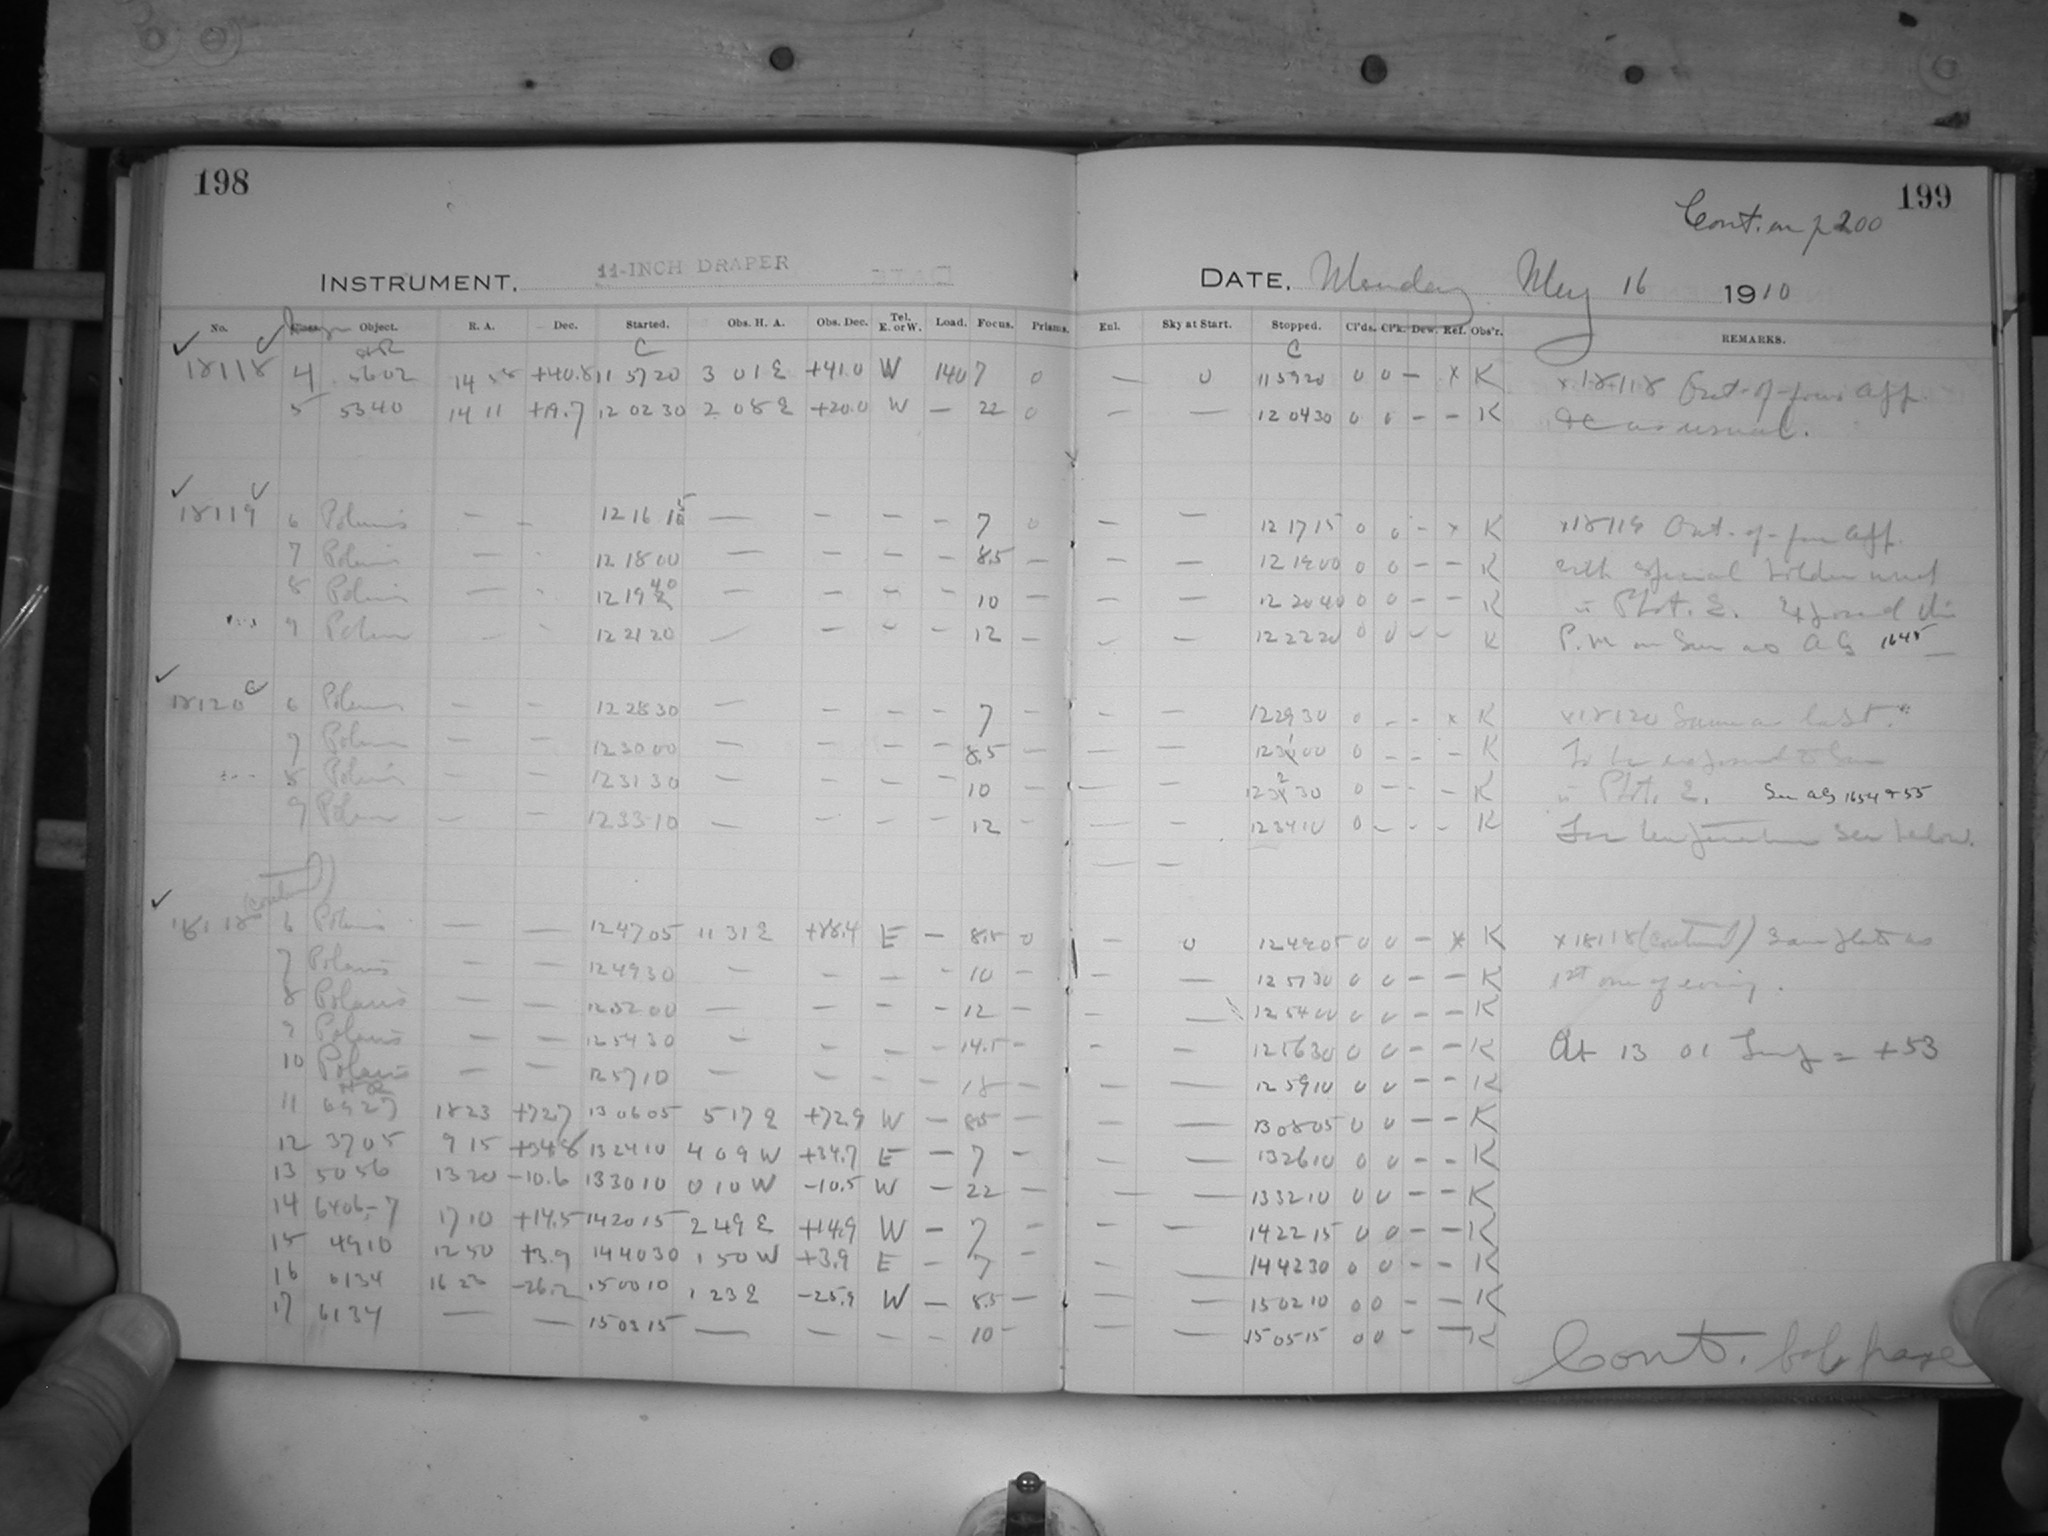 198
199
Cont. on p 200
INSTRUMENT. 11-INCH DRAPER
DATE. Monday May 16 1910
No. Object. R. A. Dec. Started. Obs. H. A. Obs. Dec. Tel. E. or W. Load. Focus. Prisms. Enl. Sky at Start. Stopped. Cl'ds. Cl'k. Dew. Ref. Obs'r. REMARKS.
C C
18118 4 5602 14 58 +40.8 11 57 20 3 01 E +41.0 W 140 7 0 — 0 11 59 20 0 0 — x K x 18118 Out-of-focus app.
5 5340 14 11 +19.7 12 02 30 2 08 E +20.0 W — 22 0 — — 12 04 30 0 0 — — K &c as usual.
18119 6 Polaris — — 12 16 15 — — — — 7 0 — — 12 17 15 0 0 - x K x18119 Out-of-focus app.
7 Polaris — - 12 18 00 — — — — 8.5 — — — 12 19 00 0 0 — — K with special holder used
8 Polaris — - 12 19 40 — — — — 10 — — — 12 20 40 0 0 — — K in Phot. E. Exposed this
9 Polaris — — 12 21 20 — — — — 12 — — — 12 22 20 0 0 — — K P.M on Sun as AG 1645
18120 6 Polaris — — 12 28 30 — — — — 7 — — 12 29 30 0 - - x K x18120 Same as last.
7 Polaris — — 12 30 00 — — — — 8.5 — — — 12 31 00 0 - - - K To be exposed to Sun
8 Polaris — — 12 31 30 — — — — 10 — — — 12 32 30 0 - - - K in Phot. E. See AG 1654 + 55
9 Polaris — — 12 33 10 — — — — 12 — — — 12 34 10 0 - - - K For temperature see below.
— —
18118 (continued) 6 Polaris — — 12 47 05 11 31 E +88.4 E — 8.5 0 — 0 12 49 05 0 0 — x K x18118 (continued) Same plate as
7 Polaris — — 12 49 30 — — — — 10 — — — 12 51 30 0 0 — — K 1st one of evening.
8 Polaris — — 12 52 00 — — — — 12 — — — 12 54 00 0 0 — — K
9 Polaris — — 12 54 30 — — — — 14.5 — — — 12 56 30 0 0 — — K At 13 01 Temp = +53
10 Polaris — — 12 57 10 — — — — 18 — — — 12 59 10 0 0 — — K
HR
11 6927 18 23 +72.7 13 06 05 5 17 E +72.9 W — 8.5 — — — 13 08 05 0 0 — — K
12 3705 9 15 +34.8 13 24 10 4 09 W +34.7 E — 7 — — — 13 26 10 0 0 — — K
13 5056 13 20 -10.6 13 30 10 0 10 W -10.5 W — 22 — — — 13 32 10 0 0 — — K
14 6406-7 17 10 +14.5 14 20 15 2 49 E +14.9 W — 7 — — — 14 22 15 0 0 — — K
15 4910 12 50 +3.9 14 40 30 1 50 W +3.9 E — 7 — — — 14 42 30 0 0 — — K
16 6134 16 23 -26.2 15 00 10 1 23 E -25.9 W — 8.5 — — — 15 02 10 0 0 — — K
17 6134 — — 15 03 15 — — — — 10 - — — 15 05 15 0 0 - — K
Cont. page